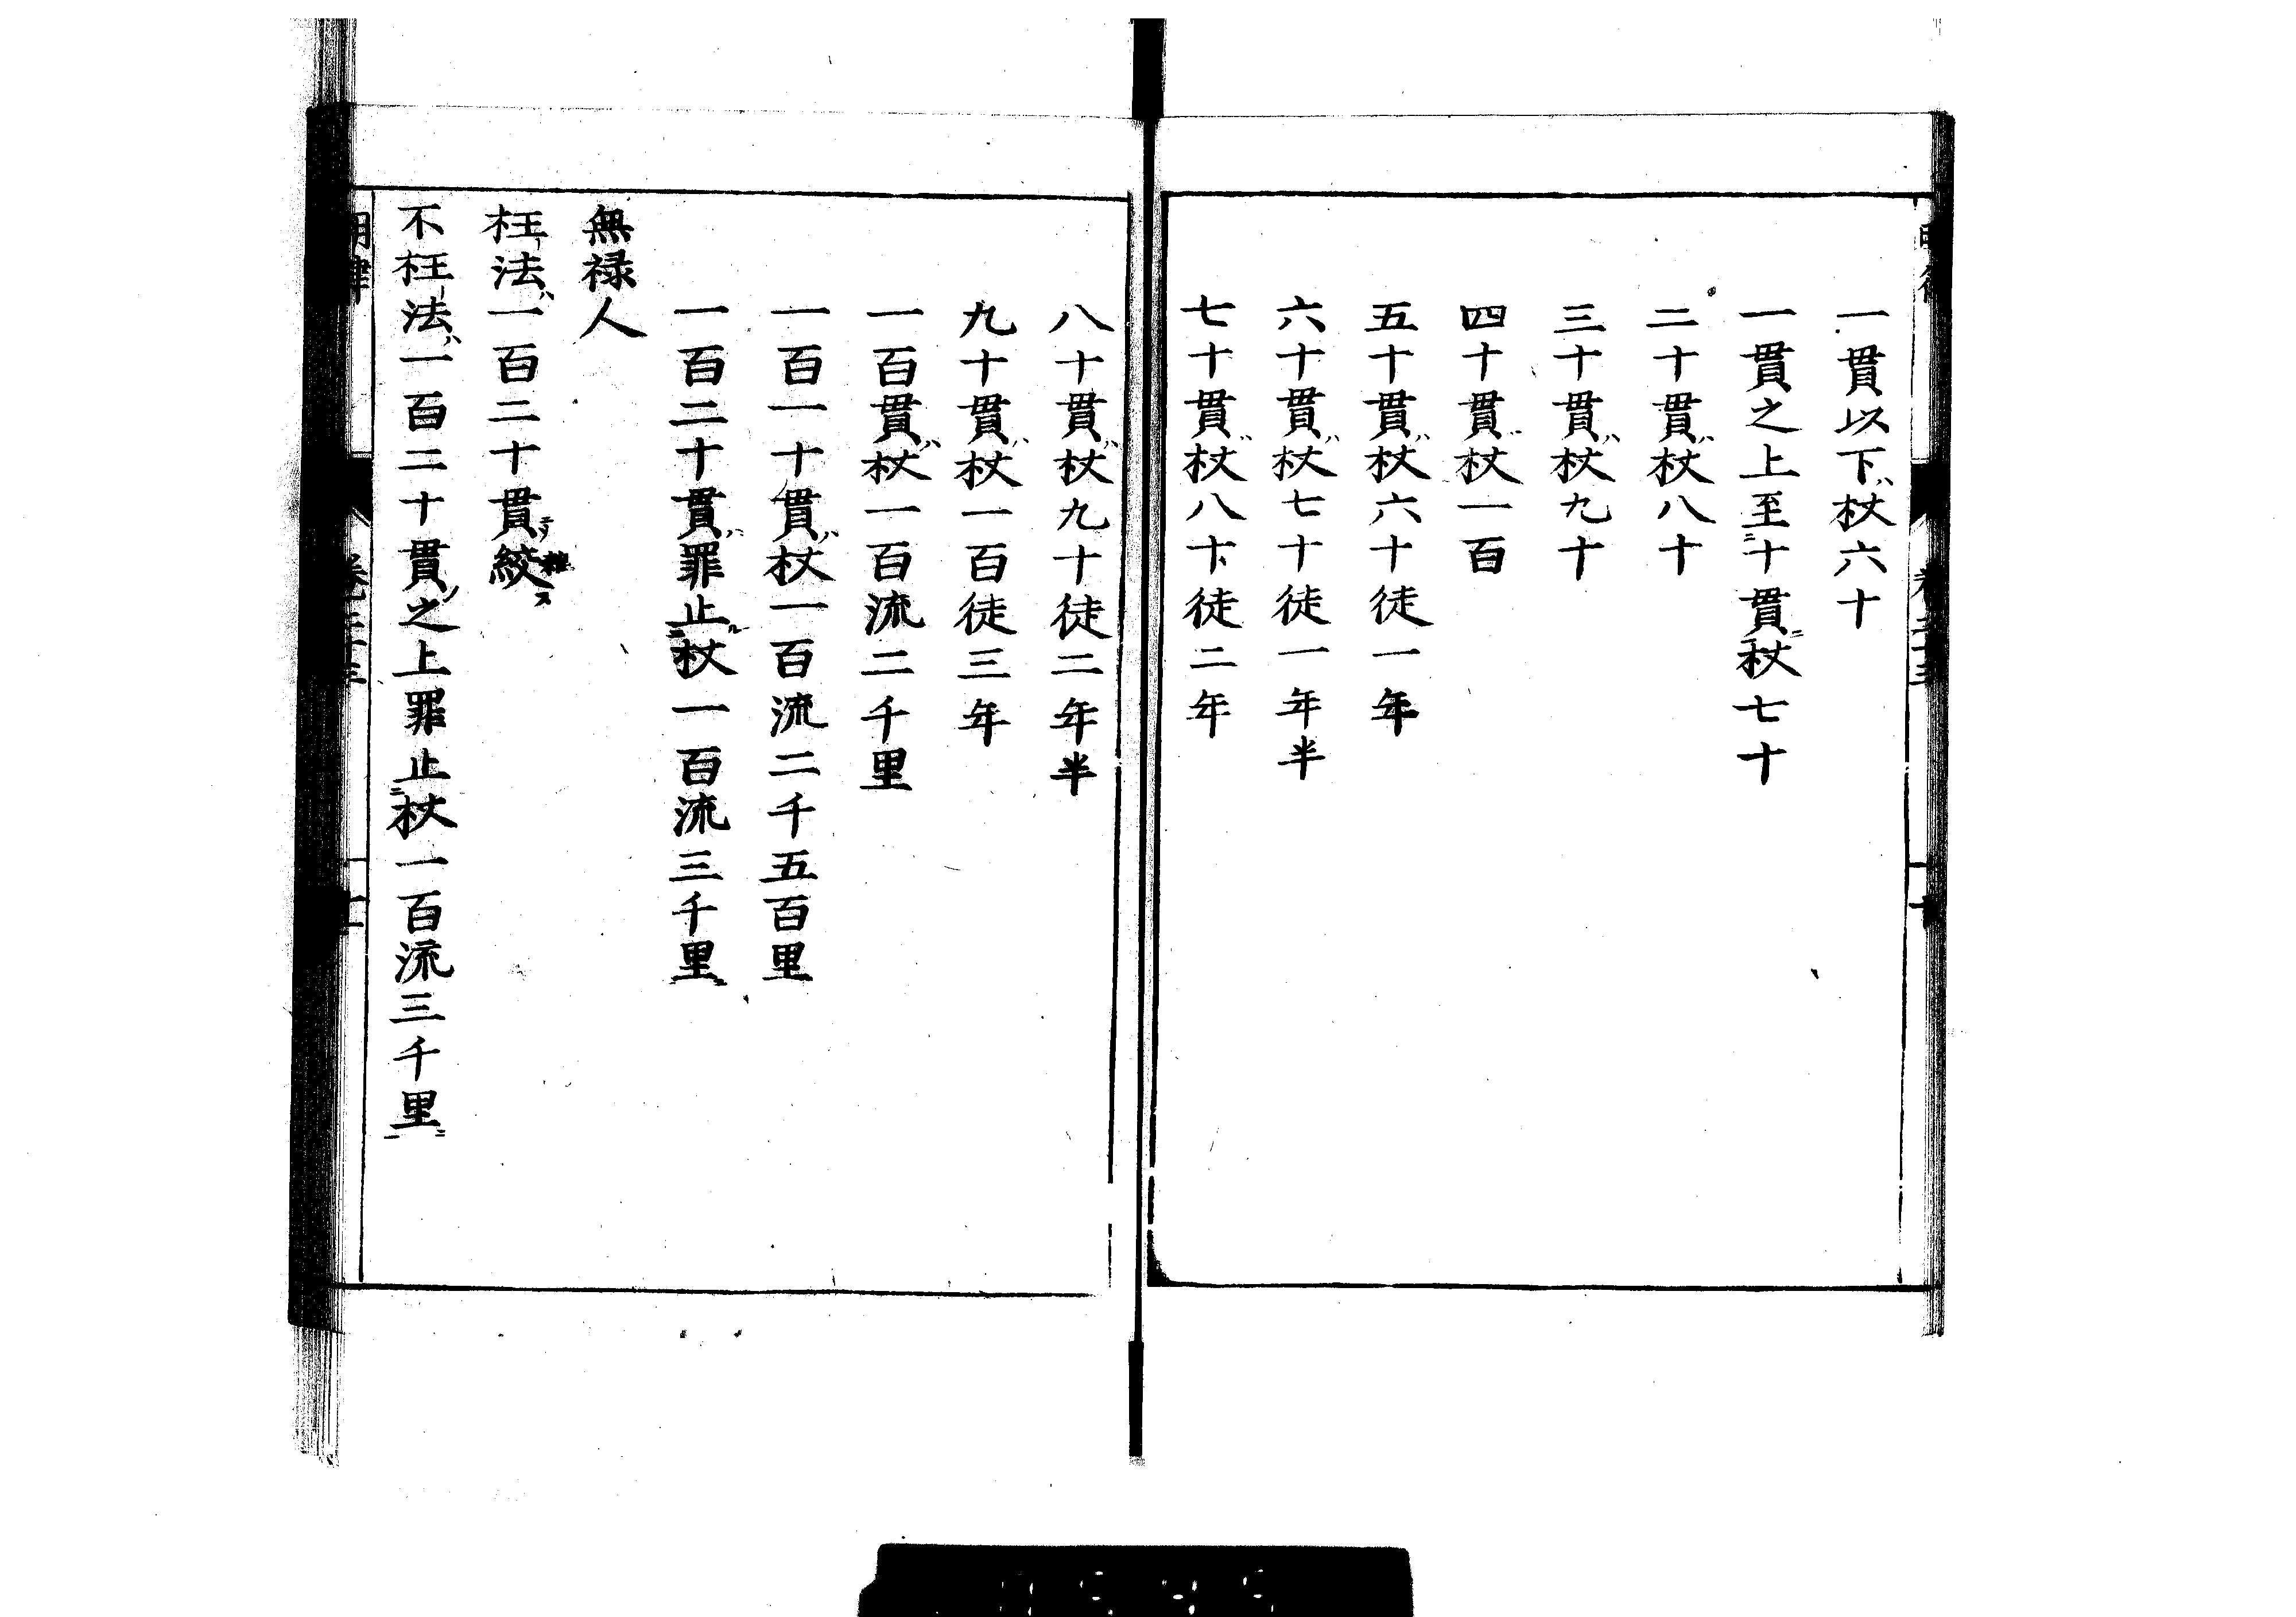 一貫以下杖六十
一貫之上至十貫杖七十
二十貫杖八十
三十貫杖九十
四十貫杖一百
五十貫杖六十徒一年
六十貫杖七十徒一年半
七十貫杖八十徒二年
八十貫杖九十徒二年半
九十貫杖一百徒三年
一百貫杖一百流二千里
一百一十貫杖一百流二千五百里
一百二十貫罪止杖一百流三千里
無禄人
枉法一百二十貫絞
不枉法一百二十貫之上罪止杖一百流三千里